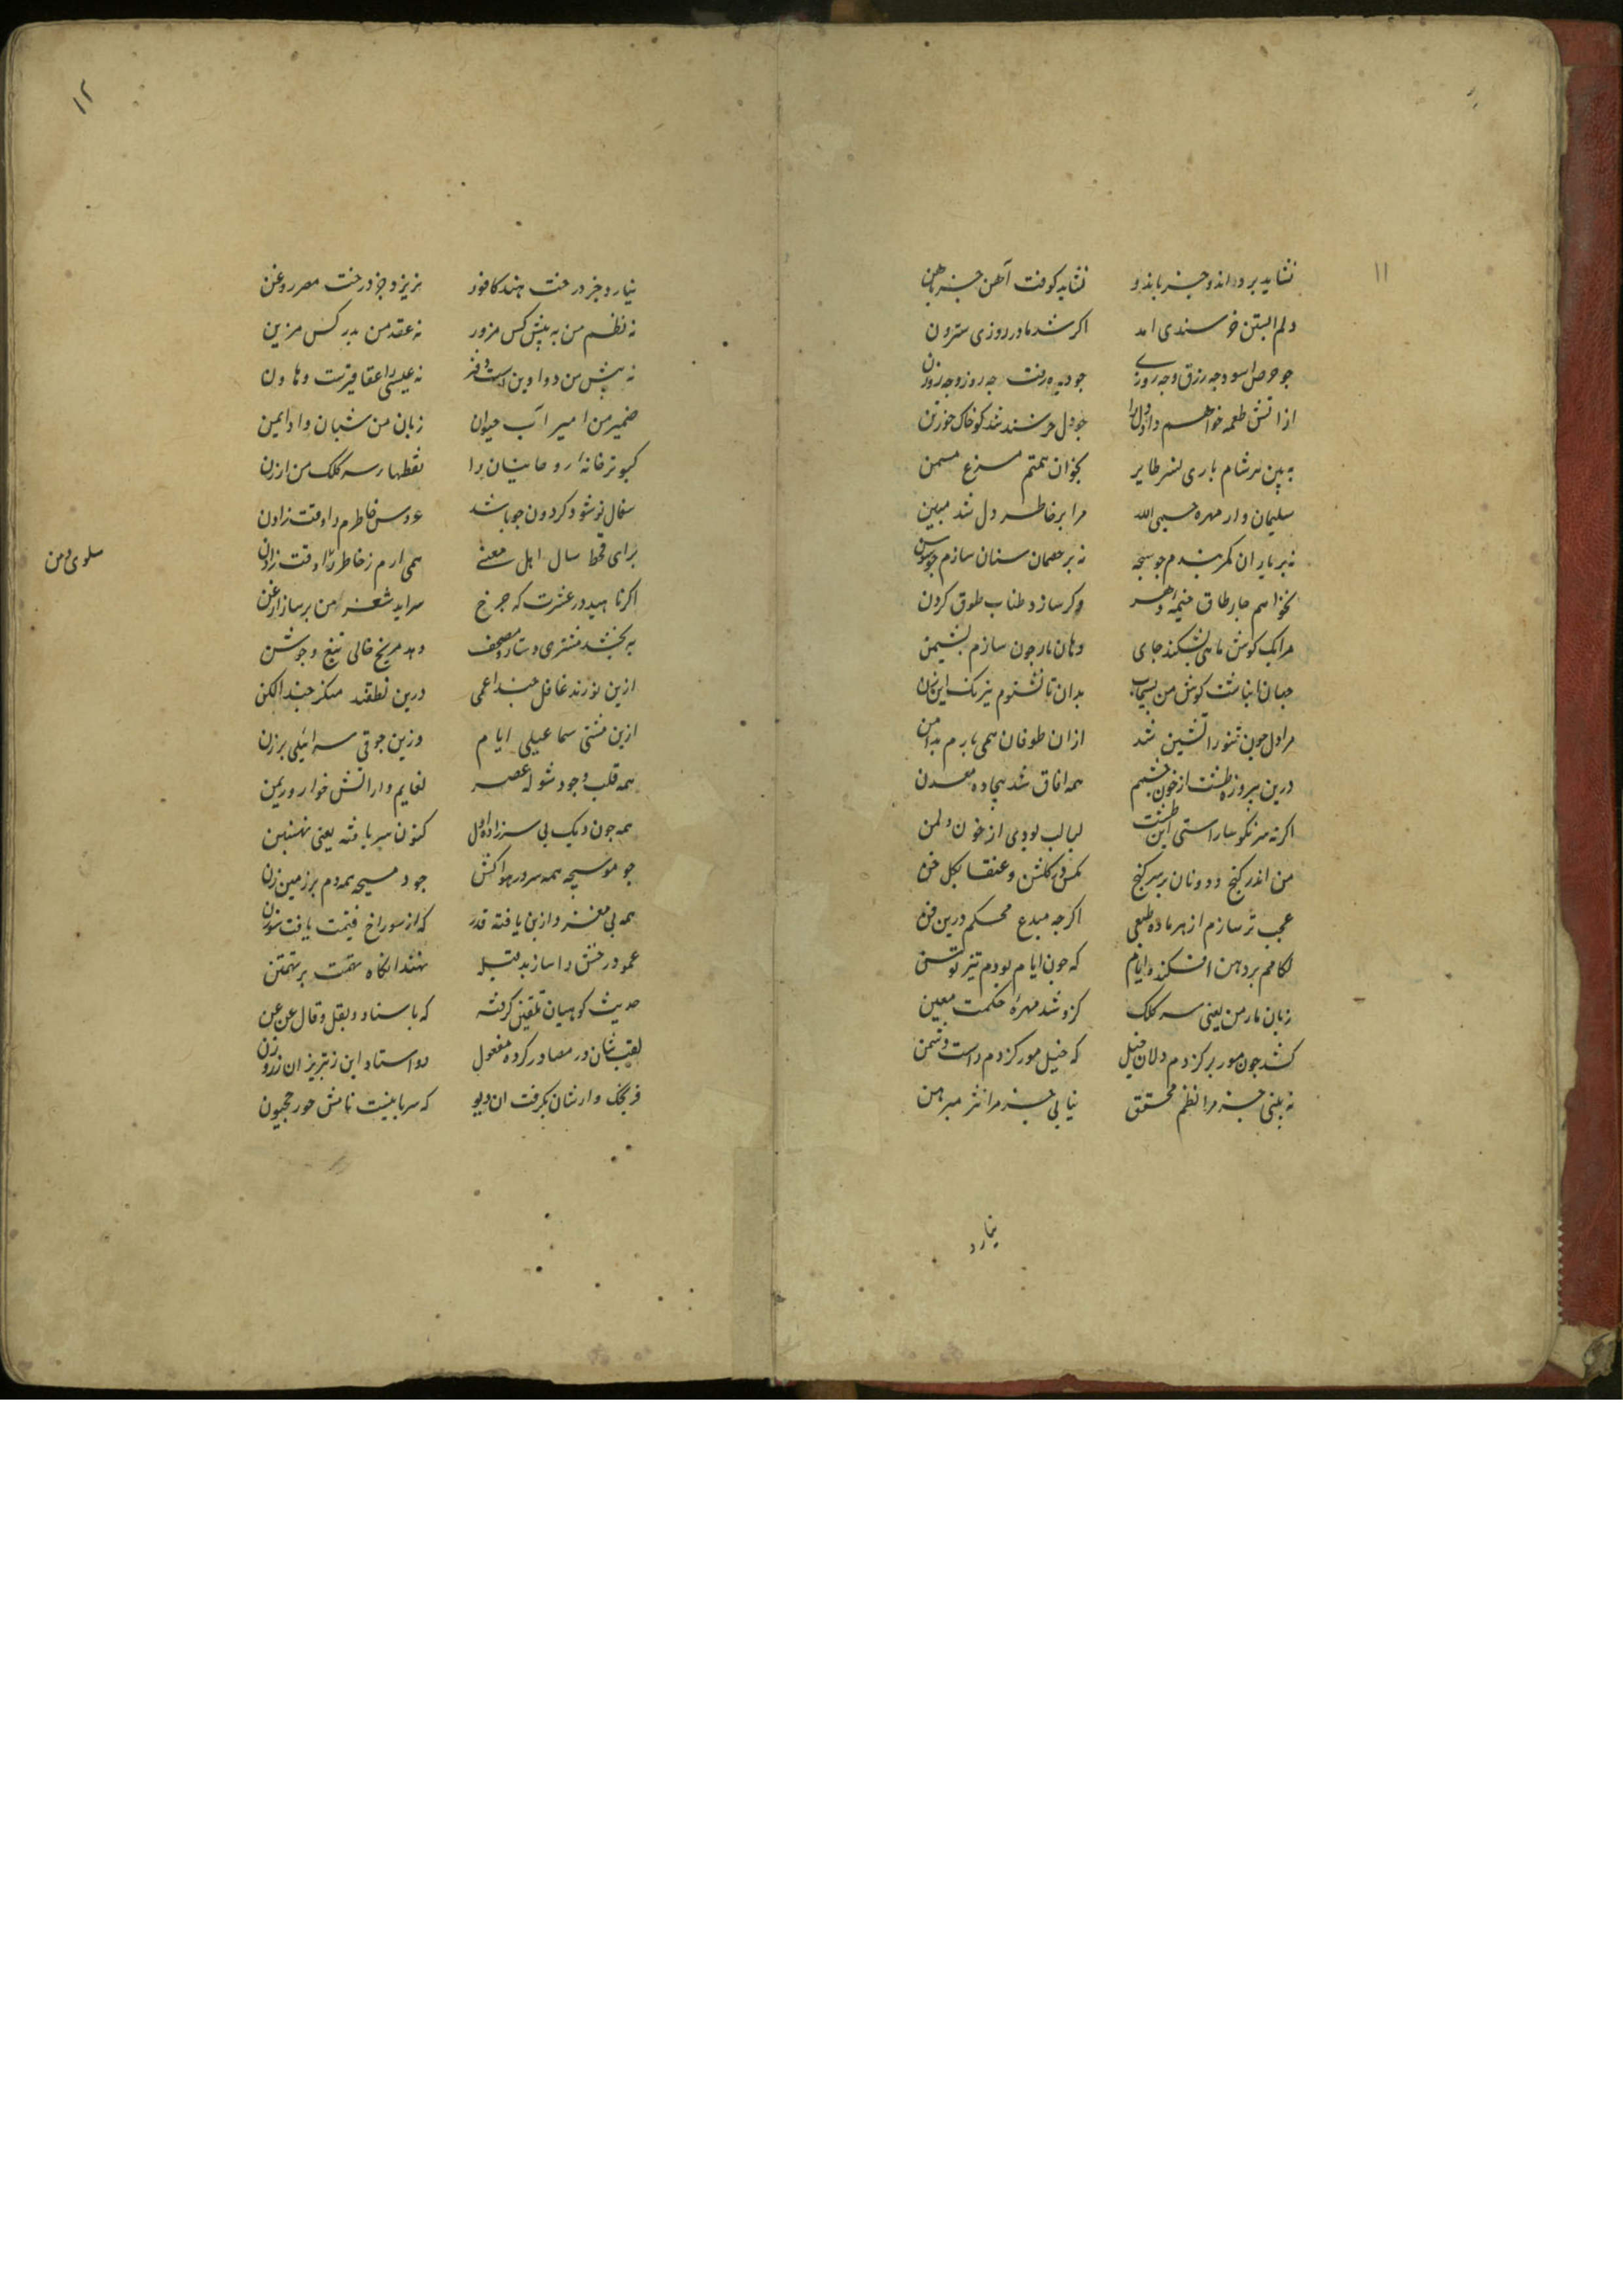 ۱۱
نشاید برد انده جز بانده نشاید کوفت آهن جز باهن
دلم ابستن خرسندی امد اکر شد مادر روزی سترون
جو حرص اسود جه رزق و جه روزی جو دیده رفت جه روز و جه روزن
ازاتش طعمه خواهم داد دلرا جو دل خرسند شد کو خاک خور تن
به بین هر شام باری نسر طایر بخوان همتم مرغ مسمن
سلیمان وار مهره حسبی الله مرا بر خاطر و دل شد مبین
نه بر یاران کمر بندم جو سبحه نه بر خصمان سنان سازم جو سوسن
نخواهم جار طاق خیمه دهر وکر سازد طناب طوق کردن
مرا یک کوش ماهی بشکند جای دهان مار جون سازم نشیمن
جهان انباشت کوش من بسیماب بدان تا نشنوم نیرنک این زن
مرا دل جون تنور آتشین شد ازان طوفان همی بارم بدامن
درین بیروزه طشت از خون جشمم همه افاق شد بیجاده معدن
اکرنه سرنکوسار استی این طشت لبالب بودی از خون دل من
من اندر کنج و دونان بر سر کنج مکس در کلشن و عنقا بکلخن
عجب تر سازم از هر ماده طبعی اکرجه مبدع محکم درین فن
لکامم بر دهن افکنده ایام که جون ایام بودم تیز توسن
زبان مار من یعنی سر کلک کزو شد مهرهٔ حکمت معین
کشد جون مور بر کزدم دلان خیل که خیل مور کزدم راست دشمن
نه بینی جز مرا نظم محقق نیابی جز مرا نثر مبرهن
نیارد
۱۲
نیارد جز درخت هند کافور نریزد جز درخت مصر روغن
نه نظم من به بیش کس مزور نه عقد من بدر کس مزین
نه بیش من دواوین است و دفتر نه عیسی را عقاقیرست و هاون
ضمیر من امیر آب حیوان زبان من شبان وادایمن
کبوتر خانه روحانیان را نقطهای سر کلک من ارزن
سفال نو شود کردون جو باشد عروس خاطرم را وقت زادن
برای قحط سال اهل معنی همی ارم ز خاطر
سلوی و من
اکر ناهید در عشرت که جرخ سراید شعر من بر ساز ارغن
به بخشد مشتری دستار و مصحف دهد مریخ حالی تیغ و جوشن
ازین نورند غافل جند اعمی درین نطقند منکر جند الکن
ازین مشتی سماعیلی ایام وزین جوقی سرائیلی برزن
همه قلب وجود شوله عصر نعایم وار اتش خوار و ریمن
همه جون دیک بی سر زاده اول کنون سر یافته یعنی نهنبن
جو موسیجه همه سر در هوا کش جو دمسیجه همه دم بر زمین زن
همه بی مغز و از بن یافته قدر که از سوراخ قیمت یافت سوزن
عمود رخش را سازند قبله نهند انکاه تهمت بر تهمتن
حدیث کوهیان تلقین کرفته که با سناد و بعقل و قال عن عن
لقب‌شان در مصادر کرده مفعول دو استاد این ز تبریز ان ز زوزن
فرنجک وارشان بکرفت ان دیو که سریانیست نامش خورخجیون